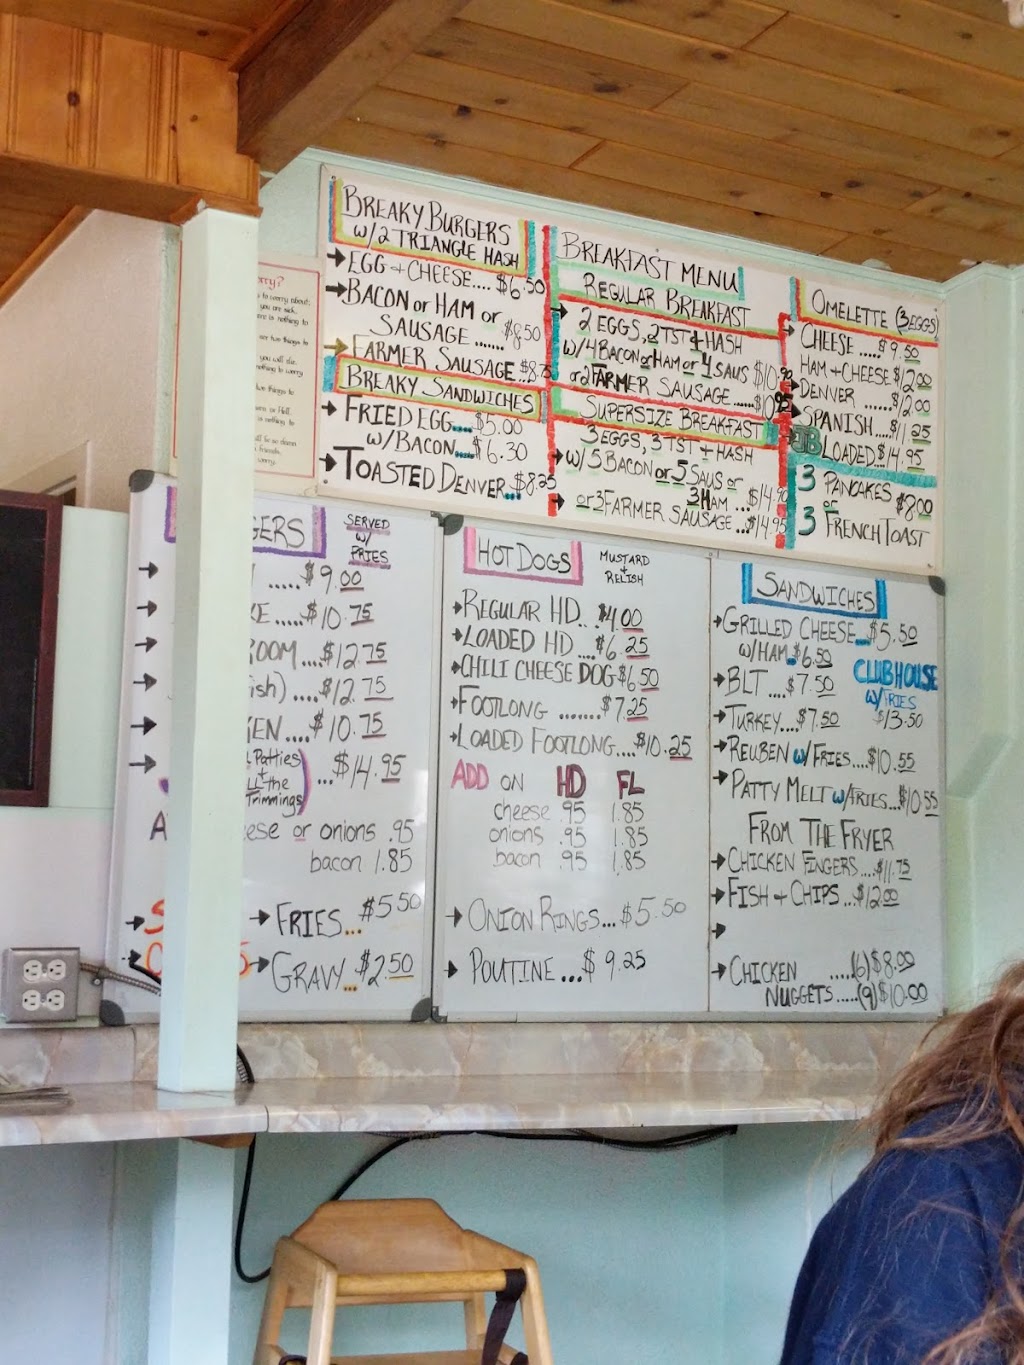 BREAKY BURGERS
W/2 TRIANGLE HASH
EGG + CHEESE.... $6.50
BACON or HAM or
SAUSAGE ....... $8.50
FARMER SAUSAGE $8.75
BREAKY SANDWICHES
FRIED EGG.... $5.00
W/BACON... $6.30
TOASTED DENVER... $8.25
BREAKFAST MENU
REGULAR BREAKFAST
2 EGGS, 2 TST + HASH
W/4 BACON or HAM or 4 SAUS $10.95
or 2 FARMER SAUSAGE ..... $10.95
SUPERSIZE BREAKFAST
3 EGGS, 3 TST + HASH
W/5 BACON or 5 SAUS or
3 HAM ... $14.90
or 3 FARMER SAUSAGE ... $14.95
OMELETTE (3 EGGS)
CHEESE ..... $9.50
HAM + CHEESE $12.00
DENVER ...... $12.00
SPANISH.... $11.25
LOADED.. $14.95
3 PANCAKES $8.00
or
3 FRENCH TOAST
rry?
to worry about:
you are sick.
here is nothing to
er two things to
you will die.
nothing to worry
two things to
or Hell.
nothing to
ll be so damn
friends,
worry.
GERS
SERVED
W/
FRIES
..... $9.00
KE ..... $10.75
ROOM .... $12.75
ish) .... $12.75
KEN .... $10.75
Patties
+
LL the
Trimmings) ... $14.95
eese or onions .95
bacon 1.85
FRIES... $5.50
GRAVY... $2.50
HOT DOGS
MUSTARD
+
RELISH
REGULAR HD.. $4.00
LOADED HD .... $6.25
CHILI CHEESE DOG $6.50
FOOTLONG ....... $7.25
LOADED FOOTLONG.... $10.25
ADD ON HD FL
cheese .95 1.85
onions .95 1.85
bacon .95 1.85
ONION RINGS... $5.50
POUTINE ... $9.25
SANDWICHES
GRILLED CHEESE... $5.50
W/HAM.. $6.50
BLT .... $7.50
CLUBHOUSE
W/FRIES
$13.50
TURKEY.... $7.50
REUBEN W/ FRIES... $10.55
PATTY MELT W/FRIES... $10.55
FROM THE FRYER
CHICKEN FINGERS.... $11.75
FISH + CHIPS ... $12.00
CHICKEN ..... (6) $8.00
NUGGETS..... (9) $10.00